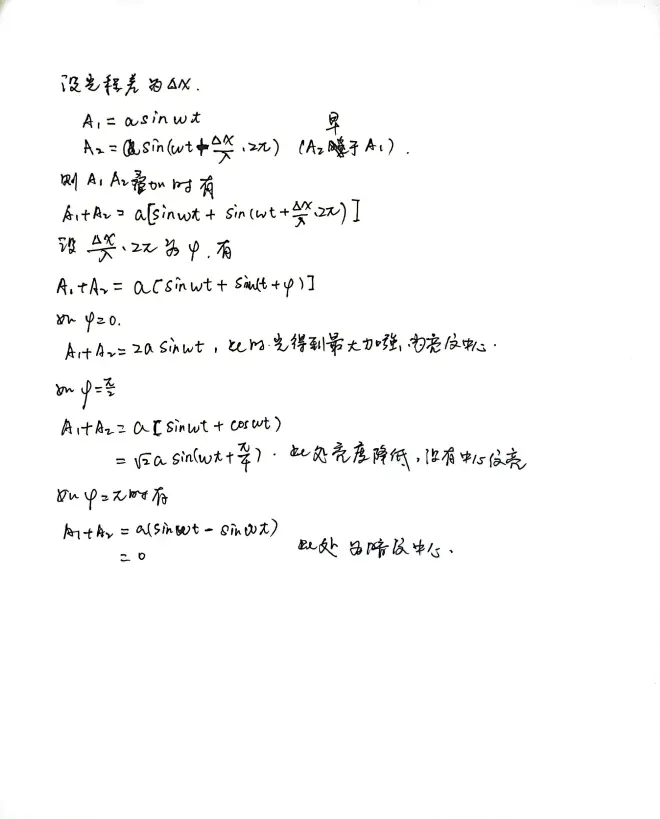 设光程差为Δx.
A₁ = a sin wt
A₂ = a sin(wt + Δx/λ · 2π) (A₂早于A₁).
则 A₁ A₂叠加时有
A₁+A₂ = a[sin wt + sin(wt + Δx/λ · 2π)]
设 Δx/λ · 2π 为 φ. 有
A₁+A₂ = a[sin wt + sin(t + φ)]
如 φ=0.
A₁+A₂ = 2a sin wt, 此时光得到最大加强, 为亮纹中心.
如 φ = π/2
A₁+A₂ = a[sin wt + cos wt)
= √2 a sin(wt + π/4). 此处亮度降低, 没有中心纹亮
如 φ = π 时有
A₁+A₂ = a(sin wt − sin wt)
= 0 此处为暗纹中心.